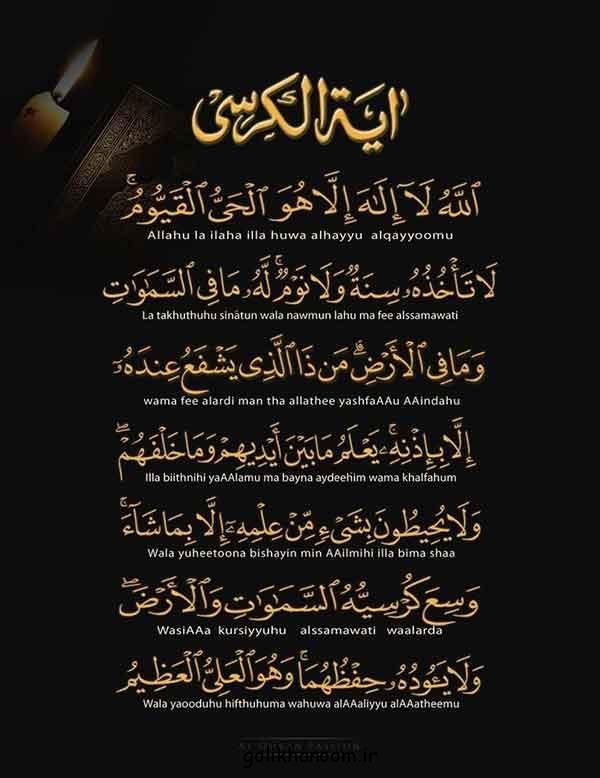 اية الكرسي
ٱللَّهُ لَآ إِلَٰهَ إِلَّا هُوَ ٱلْحَىُّ ٱلْقَيُّومُ ۚ
Allahu la ilaha illa huwa alhayyu alqayyoomu
لَا تَأْخُذُهُۥ سِنَةٌ وَلَا نَوْمٌ ۚ لَّهُۥ مَا فِى ٱلسَّمَٰوَٰتِ
La takhuthuhu sinatun wala nawmun lahu ma fee alssamawati
وَمَا فِى ٱلْأَرْضِ ۗ مَن ذَا ٱلَّذِى يَشْفَعُ عِندَهُۥٓ
wama fee alardi man tha allathee yashfaAAu AAindahu
إِلَّا بِإِذْنِهِۦ ۚ يَعْلَمُ مَا بَيْنَ أَيْدِيهِمْ وَمَا خَلْفَهُمْ ۖ
Illa biithnihi yaAAlamu ma bayna aydeehim wama khalfahum
وَلَا يُحِيطُونَ بِشَىْءٍ مِّنْ عِلْمِهِۦٓ إِلَّا بِمَا شَآءَ ۚ
Wala yuheetoona bishayin min AAilmihi illa bima shaa
وَسِعَ كُرْسِيُّهُ ٱلسَّمَٰوَٰتِ وَٱلْأَرْضَ ۖ
WasiAAa kursiyyuhu alssamawati waalarda
وَلَا يَـُٔودُهُۥ حِفْظُهُمَا ۚ وَهُوَ ٱلْعَلِىُّ ٱلْعَظِيمُ
Wala yaooduhu hifthuhuma wahuwa alAAaliyyu alAAatheemu
golikhanoom.ir